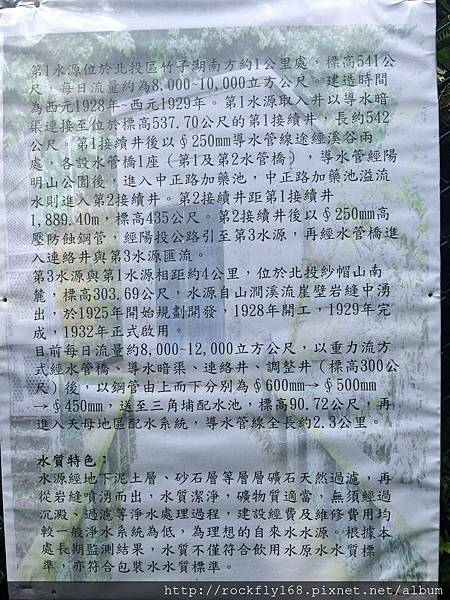 第1水源位於北投區竹子湖南方約1公里處，標高541公
尺，每日流量約為8,000~10,000立方公尺。建造時間
為西元1928年~西元1929年。第1水源取入井以導水暗
渠連接至位於標高537.70公尺的第1接續井，長約542
公尺。第1接續井後以∮250mm導水管線途經溪谷兩
處，各設水管橋1座（第1及第2水管橋），導水管經陽
明山公園後，進入中正路加藥池，中正路加藥池溢流
水則進入第2接續井。第2接續井距第1接續井
1,889.40m，標高435公尺。第2接續井後以∮250mm高
壓防蝕鋼管，經陽投公路引至第3水源，再經水管橋進
入連絡井與第3水源匯流。
第3水源與第1水源相距約4公里，位於北投紗帽山南
麓，標高303.69公尺，水源自山澗溪流崖壁岩縫中湧
出，於1925年開始規劃開發，1928年開工，1929年完
成，1932年正式啟用。
目前每日流量約8,000~12,000立方公尺，以重力流方
式經水管橋、導水暗渠、連絡井、調整井（標高300公
尺）後，以鋼管由上而下分別為∮600mm→∮500mm
→∮450mm，送至三角埔配水池，標高90.72公尺，再
進入天母地區配水系統，導水管線全長約2.3公里。
水質特色：
水源經地下泥土層、砂石層等層層礦石天然過濾，再
從岩縫噴湧而出，水質潔淨，礦物質適當，無須經過
沉澱、過濾等淨水處理過程，建設經費及維修費用均
較一般淨水系統為低，為理想的自來水水源。根據本
處長期監測結果，水質不僅符合飲用水原水水質標
準，亦符合包裝水水質標準。
http://rockfly168.pixnet.net/album